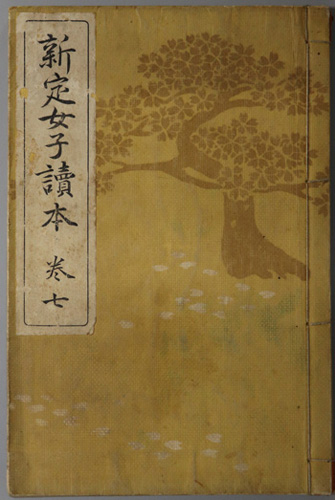 新定女子讀本 卷七